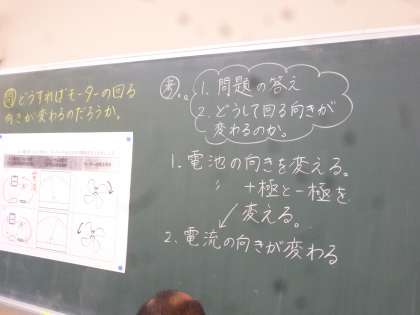 問 どうすればモーターの回る
向きが変わるのだろうか。
考 1. 問題の答え
2. どうして回る向きが
変わるのか。
1. 電池の向きを変える。
〃 +極と-極を
変える。
2. 電流の向きが変わる